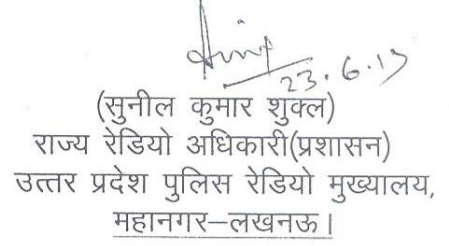 23.6.19
(सुनील कुमार शुक्ल)
राज्य रेडियो अधिकारी(प्रशासन)
उत्तर प्रदेश पुलिस रेडियो मुख्यालय,
महानगर–लखनऊ।